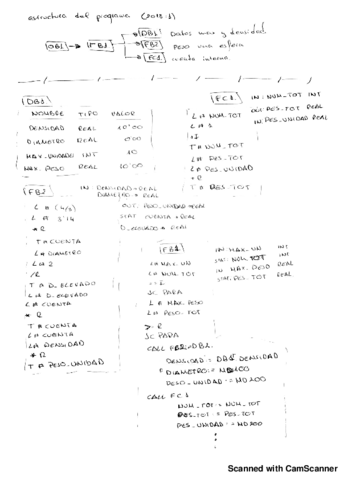 estructura del programa (2018.1)
DB1 Datos max y densidad.
OB1 → FB1 → FB2 Peso una esfera
FC1 cuenta interna
DB1
NOMBRE TIPO VALOR
DENSIDAD REAL 10'00
DIAMETRO REAL 0'00
MAX_UNIDADES INT 10
MAX_PESO REAL 20'00
FC1 IN: NUM_TOT INT
OUT: PES_TOT REAL
IN: PES_UNIDAD REAL
L # NUM_TOT
L # 1
+I
T # NUM_TOT
L # PES_TOT
L # PES_UNIDAD
+R
T # PES_TOT
FB2 IN DENSIDAD = REAL
DIAMETRO = REAL
OUT PESO_UNIDAD = REAL
STAT CUENTA = REAL
D_ELEVADO = REAL
L # (4/3)
L # 3'14
* R
T # CUENTA
L # DIAMETRO
L # 2
/R
T # D_ELEVADO
L # D_ELEVADO
L # CUENTA
* R
T # CUENTA
L # CUENTA
L # DENSIDAD
* R
T # PESO_UNIDAD
FB1 IN MAX_UN INT
NUM_TOT INT
IN MAX_PESO REAL
PES_TOT REAL
L # MAX_UN
L # NUM_TOT
JC PARA
L # MAX_PESO
L # PESO_TOT
>R
JC PARA
CALL FB2,DB2
DENSIDAD := DB1.DENSIDAD
DIAMETRO := MD100
PESO_UNIDAD := MD200
CALL FC1
NUM_TOT := NUM_TOT
PES_TOT := PES_TOT
PES_UNIDAD := MD200
Scanned with CamScanner